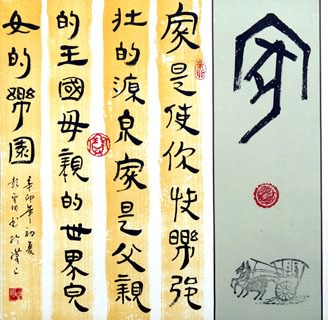 家
家是使你快樂强
壮的源泉家是父親
的王國母親的世界兒
女的樂園
辛卯年初夏